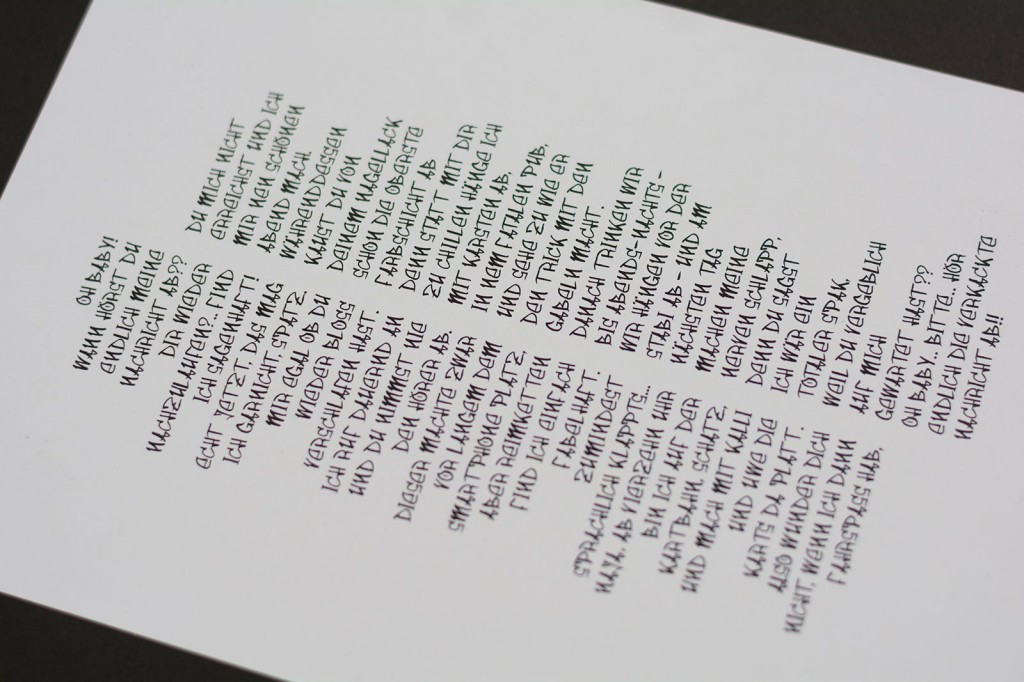 OH BABY!
WANN HÖRST DU
ENDLICH MEINE
NACHRICHT AB??
DIR WIEDER
NACHZULAUFEN?.. FIND
ICH SAGENHAFT!
ECHT JETZT, DAS MAG
ICH GARNICHT, SPATZ.
MIR EGAL OB DU
WIEDER BLOSS
VERSCHLAFEN HAST.
ICH RUF DAUERND AN
UND DU NIMMST NIE
DEN HÖRER AB.
DIESER MACHTE ZWAR
VOR LANGEM DEM
SMARTPHONE PLATZ,
ABER REIMKETTEN
FIND ICH EINFACH
FABELHAFT.
ZUMINDEST
SPRACHLICH KLAPPTS...
NAJA, AB VIERZEHN UHR
BIN ICH AUF DER
KARTBAHN, SCHATZ,
UND MACH MIT KALLI
UND UWE DIE
KARTS DA PLATT.
ALSO WUNDER DICH
NICHT, WENN ICH DANN
FAHRSPASS HAB,
DU MICH NICHT
ERREICHST UND ICH
MIR NEN SCHÖNEN
ABEND MACH.
WÄHRENDDESSEN
KAUST DU VON
DEINEM NAGELLACK
SCHON DIE OBERSTE
FARBSCHICHT AB
DENN STATT MIT DIR
ZU CHILLEN HÄNGE ICH
MIT KARSTEN AB,
IN NEM FATALEN PUB,
UND SEHE ZU WIE ER
DEN TRICK MIT DEN
GABELN MACHT.
DANACH TRINKEN WIR
BIS ABENDS-NACHTS-
WIR HÄNGEN VOR DER
STABI AB - UND AM
NÄCHSTEN TAG
MACHEN MEINE
NERVEN SCHLAPP,
DENN DU SAGST
ICH WÄR EIN
TOTALER SPAK,
WEIL DU VERGEBLICH
AUF MICH
GEWARTET HAST??
OH BABY.. BITTE.. HÖR
ENDLICH DIE VERKACKTE
NACHRICHT AB!!